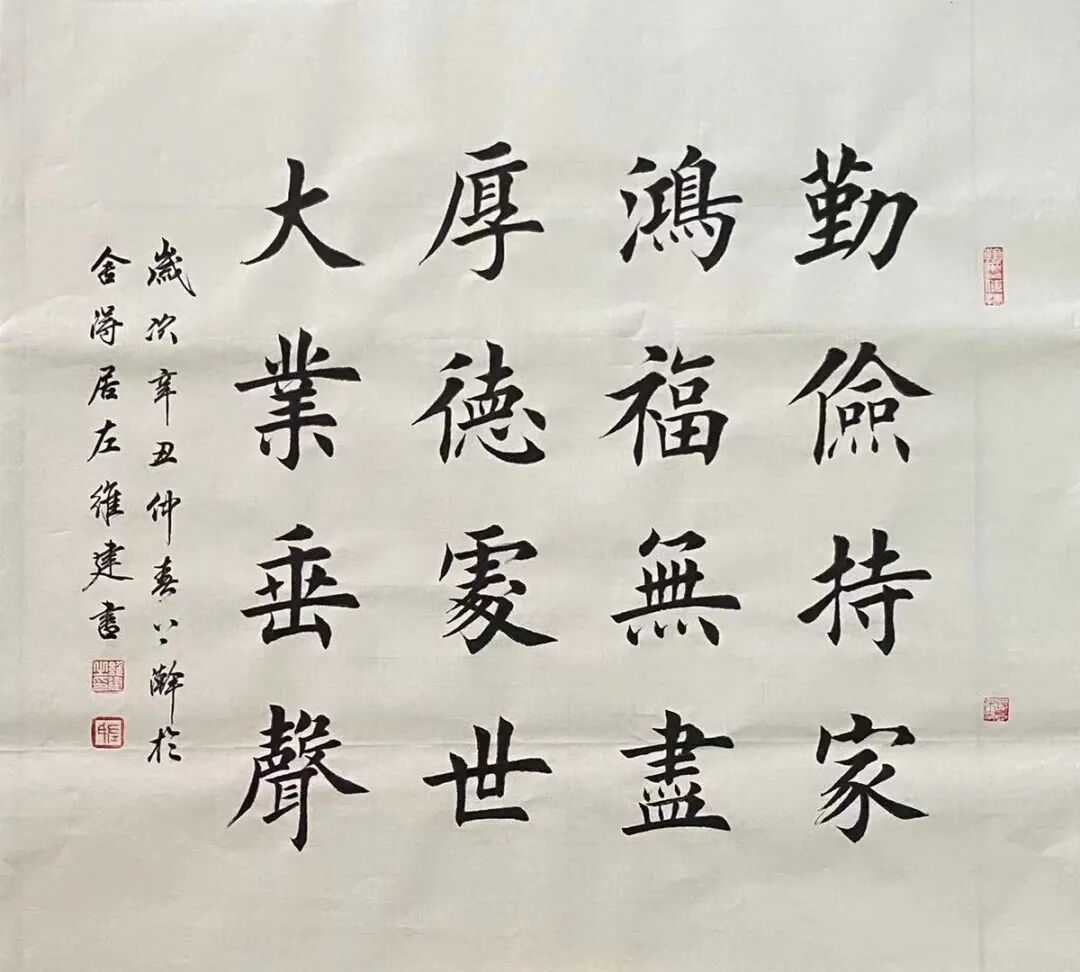 勤儉持家
鴻福無盡
厚德處世
大業垂聲
歲次辛丑仲春下澣於
舍得居左維建書